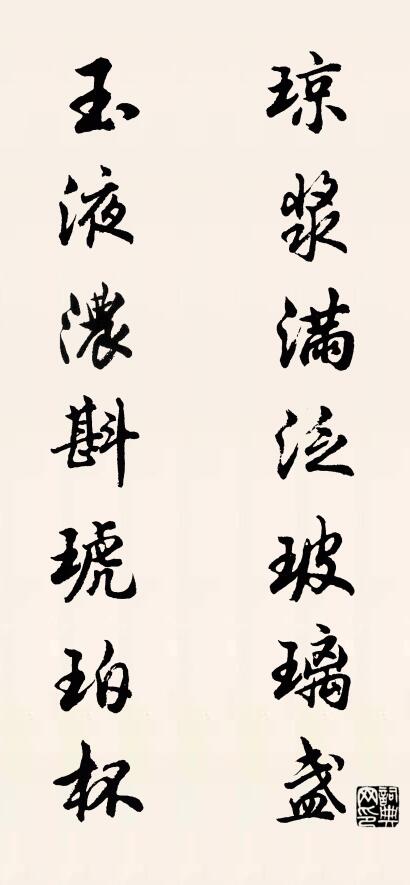 琼浆满泛玻璃盏
玉液浓斟琥珀杯
詞典網印